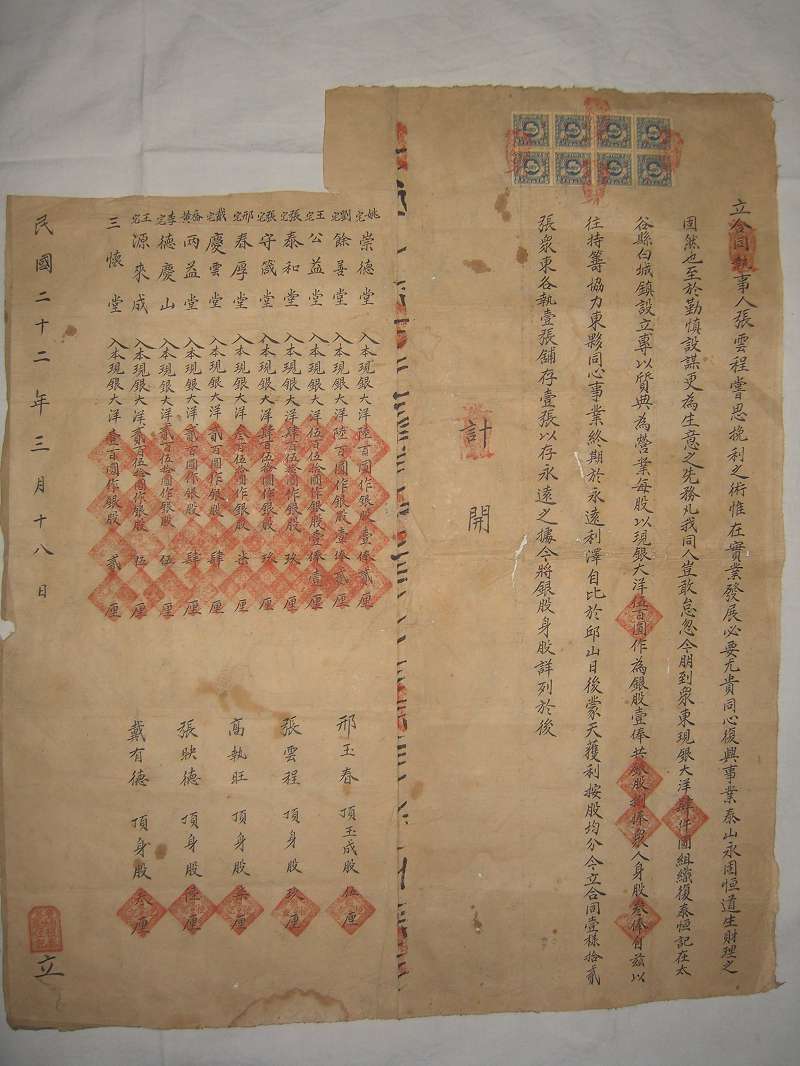 立合同執事人張雲程嘗思挽利之術惟在實業發展必要尤貴同心復興事業泰山永固恒道生財理之
固然也至於勤慎設謀更為生意之先務凡我同人豈敢怠忽今朋到衆東現銀大洋肆仟圓組織復泰恒記在太
谷縣白城鎮設立專以質典為營業每股以現銀大洋伍百圓作為銀股壹俸共銀股捌俸衆人身股叁俸自茲以
往持籌協力東夥同心事業終期於永遠利澤自比於邱山日後蒙天獲利按股均分今立合同壹樣拾貳
張衆東各執壹張舖存壹張以存永遠之據今將銀股身股詳列於後
計開
姚宅 崇德堂 入本現銀大洋陸百圓作銀股壹俸貳厘
劉宅 餘善堂 入本現銀大洋陸百圓作銀股壹俸貳厘
王宅 公益堂 入本現銀大洋伍百伍拾圓作銀股壹俸壹厘
張宅 泰和堂 入本現銀大洋肆百伍拾圓作銀股玖厘
張宅 守箴堂 入本現銀大洋肆百伍拾圓作銀股玖厘
邢宅 春厚堂 入本現銀大洋叁百伍拾圓作銀股柒厘
戴宅 慶雲堂 入本現銀大洋貳百圓作銀股肆厘
喬黄 兩益堂 入本現銀大洋貳百圓作銀股肆厘
李宅 德慶山 入本現銀大洋貳百伍拾圓作銀股伍厘
王宅 源來成 入本現銀大洋貳百伍拾圓作銀股伍厘
三懷堂 入本現銀大洋壹百圓作銀股貳厘
邢玉春 頂玉成股伍厘
張雲程 頂身股玖厘
高執旺 頂身股柒厘
張映德 頂身股陸厘
戴有德 頂身股叁厘
民國二十二年三月十八日 立